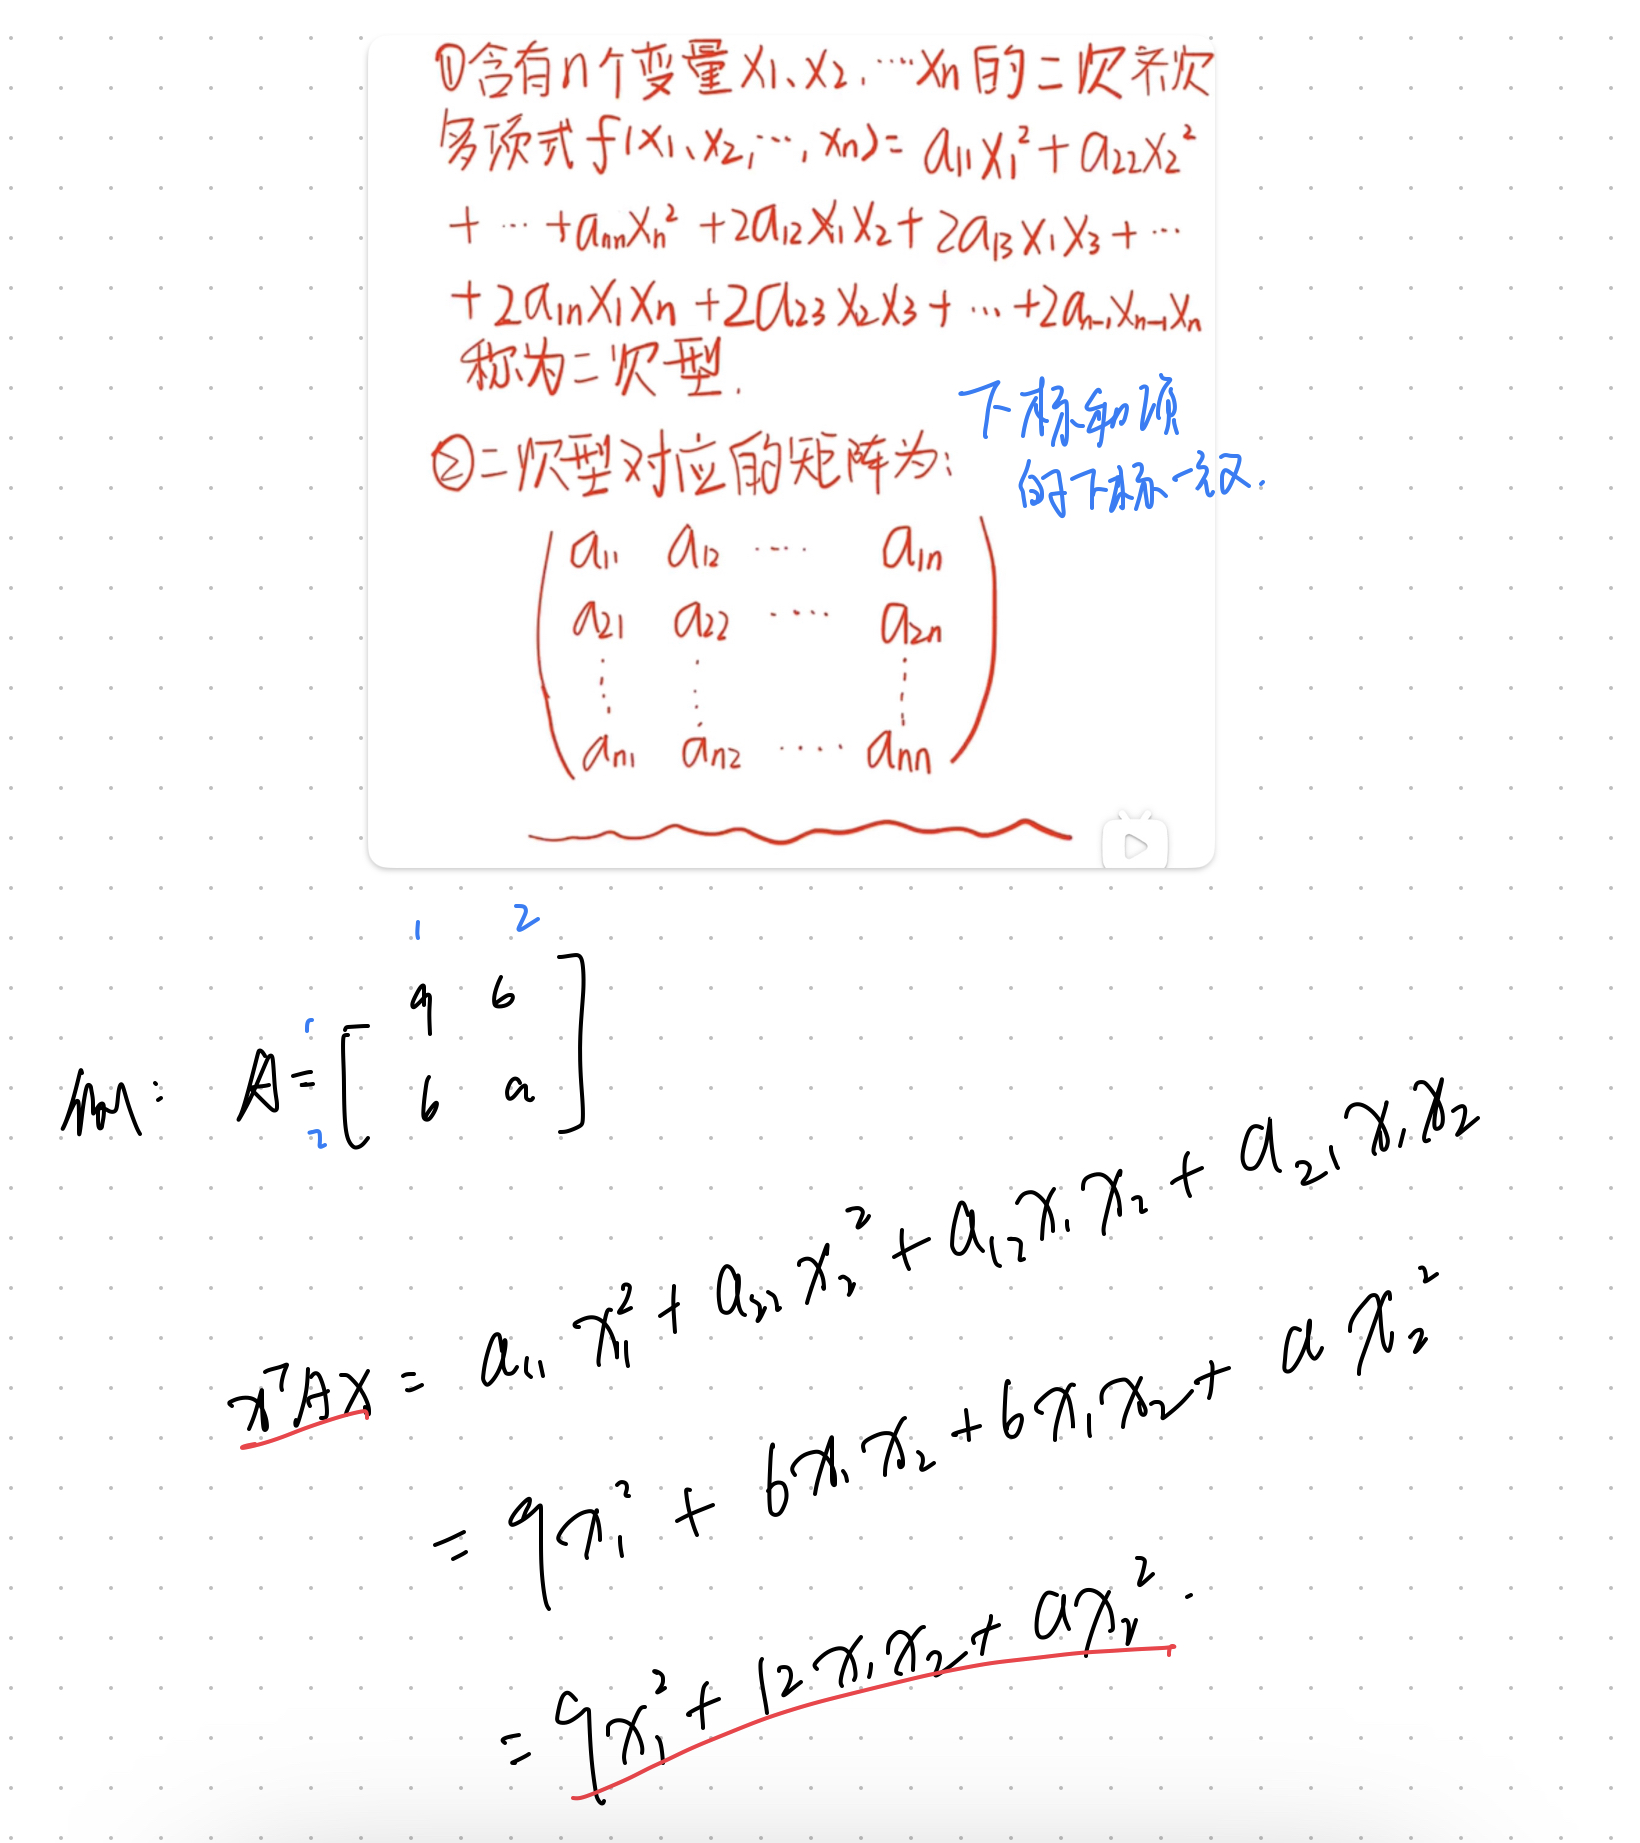 ①含有n个变量x₁、x₂,…xₙ的二次齐次
多项式f(x₁、x₂,…,xₙ)=a₁₁x₁²+a₂₂x₂²
+…+aₙₙxₙ²+2a₁₂x₁x₂+2a₁₃x₁x₃+…
+2a₁ₙx₁xₙ+2a₂₃x₂x₃+…+2aₙ₋₁xₙ₋₁xₙ
称为二次型.
下标和项
的下标一致.
②二次型对应的矩阵为:
a₁₁ a₁₂ … a₁ₙ
a₂₁ a₂₂ … a₂ₙ
aₙ₁ aₙ₂ … aₙₙ
1 2
1 9 6
A=
2 6 a
xᵀAx = a₁₁x₁² + a₂₂x₂² + a₁₂x₁x₂ + a₂₁x₁x₂
= 9x₁² + 6x₁x₂ + 6x₁x₂ + ax₂²
= 9x₁² + 12x₁x₂ + ax₂².